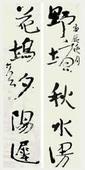 野塘秋水漫
花塢夕陽遲